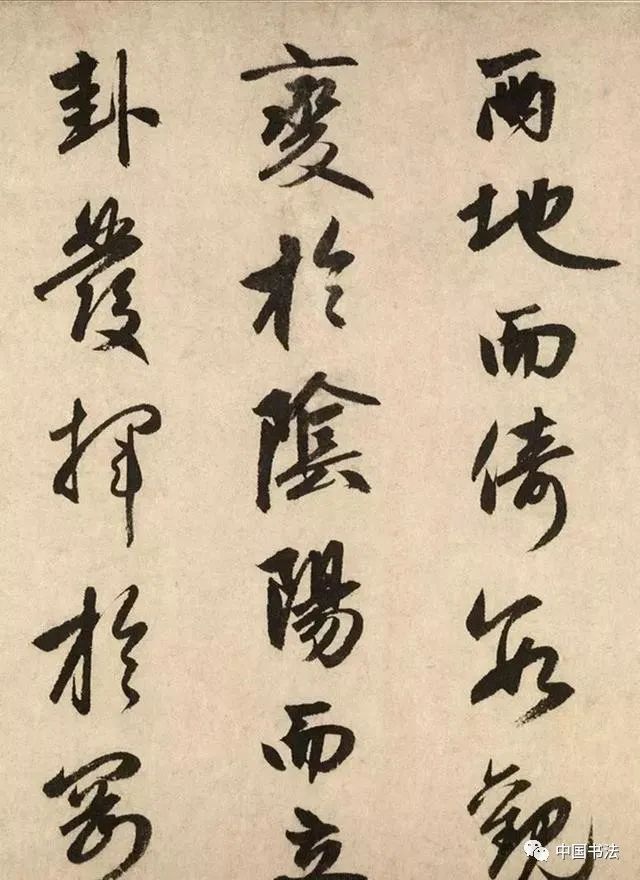 兩地而倚數觀
變於陰陽而立
卦發揮於剛
中国书法